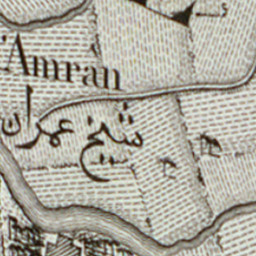 'Amran
شيخ عمران